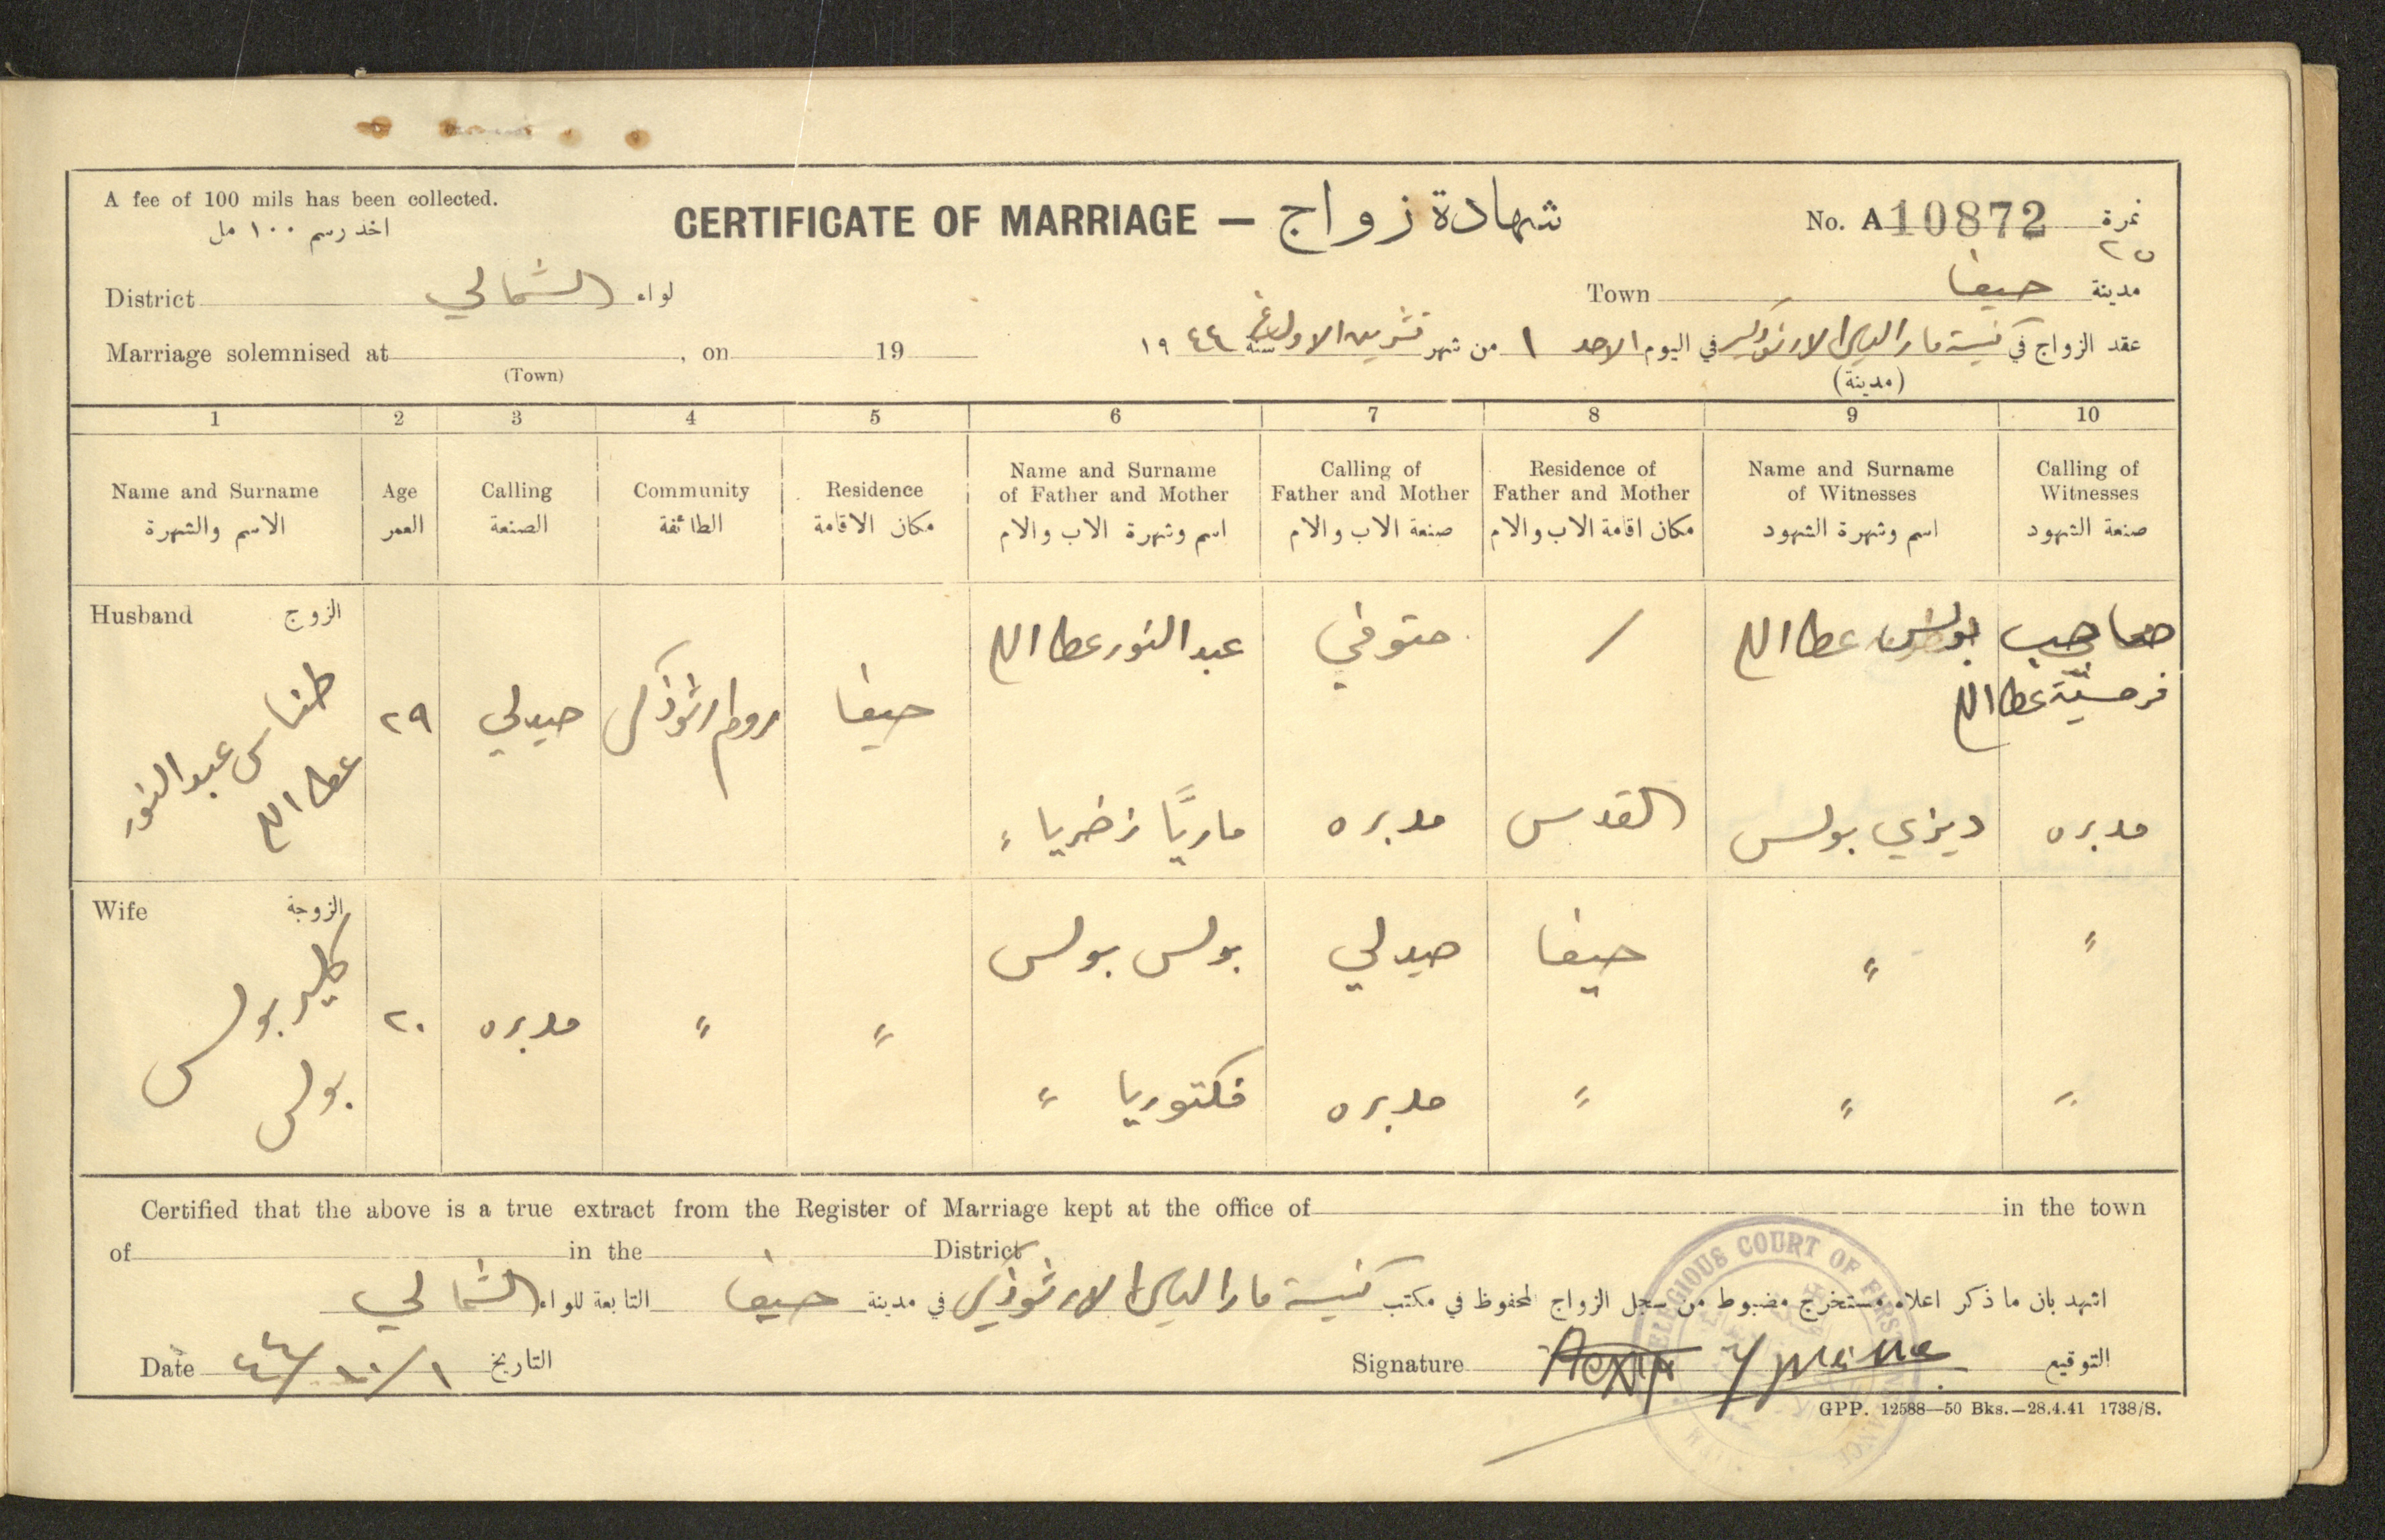 A fee of 100 mils has been collected.
اخذ رسم ١٠٠ مل
CERTIFICATE OF MARRIAGE — شهادة زواج
No. A 10872 نمرة
٢٥
District الشمالي لواء
Town حيفا مدينة
Marriage solemnised at , on 19
(Town)
عقد الزواج في كنيسة مار الياس الارثوذكسية في اليوم الاحد ١ من شهر تشرين الاول سنة ١٩٤٤
(مدينة)
1 2 3 4 5 6 7 8 9 10
Name and Surname
الاسم والشهرة
Age
العمر
Calling
الصنعة
Community
الطائفة
Residence
مكان الاقامة
Name and Surname
of Father and Mother
اسم وشهرة الاب والام
Calling of
Father and Mother
صنعة الاب والام
Residence of
Father and Mother
مكان اقامة الاب والام
Name and Surname
of Witnesses
اسم وشهرة الشهود
Calling of
Witnesses
صنعة الشهود
Husband الزوج
طناس عبد النور
عطا الله
٢٩
صيدلي
روم ارثوذكس
حيفا
عبد النور عطا الله
متوفي
/
بولس عطا الله
صاحب
عطا الله
ماريَّا زخريا "
مدبره
القدس
ديزي بولس
مدبره
Wife الزوجة
كلير بولس
بولس
٢٠
مدبره
"
"
بولس بولس
صيدلي
حيفا
"
"
فكتوريا "
مدبره
"
"
"
Certified that the above is a true extract from the Register of Marriage kept at the office of in the town
of in the District
اشهد بان ما ذكر اعلاه مستخرج مضبوط من سجل الزواج المحفوظ في مكتب كنيسة مار الياس الارثوذكس في مدينة حيفا التابعة للواء الشمالي
Date ٤٤/١٠/١ التاريخ
Signature التوقيع
RELIGIOUS COURT OF FIRST INSTANCE
GPP. 12588—50 Bks.—28.4.41 1738/S.